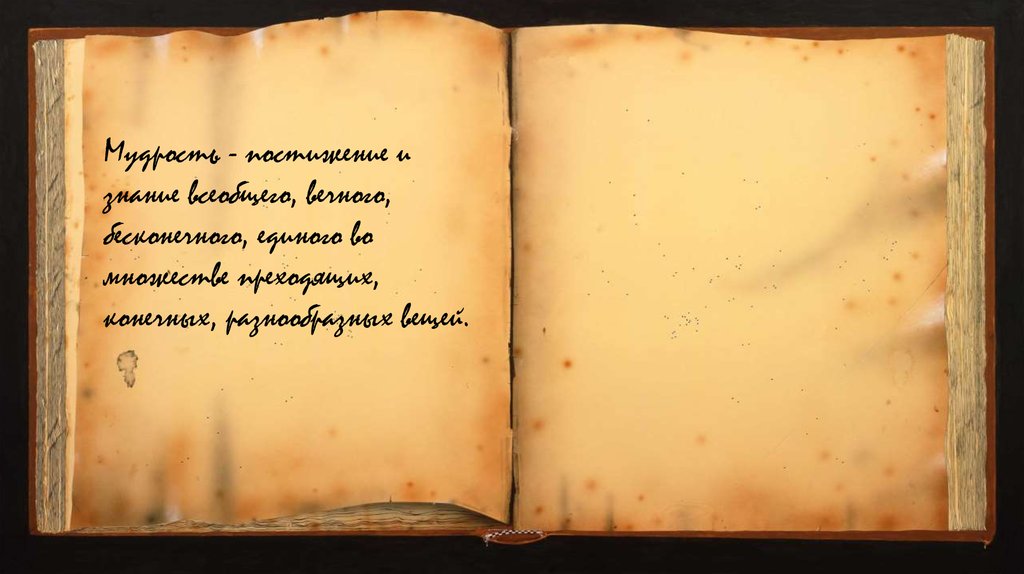 Мудрость - постижение и
знание всеобщего, вечного,
бесконечного, единого во
множестве преходящих,
конечных, разнообразных вещей.